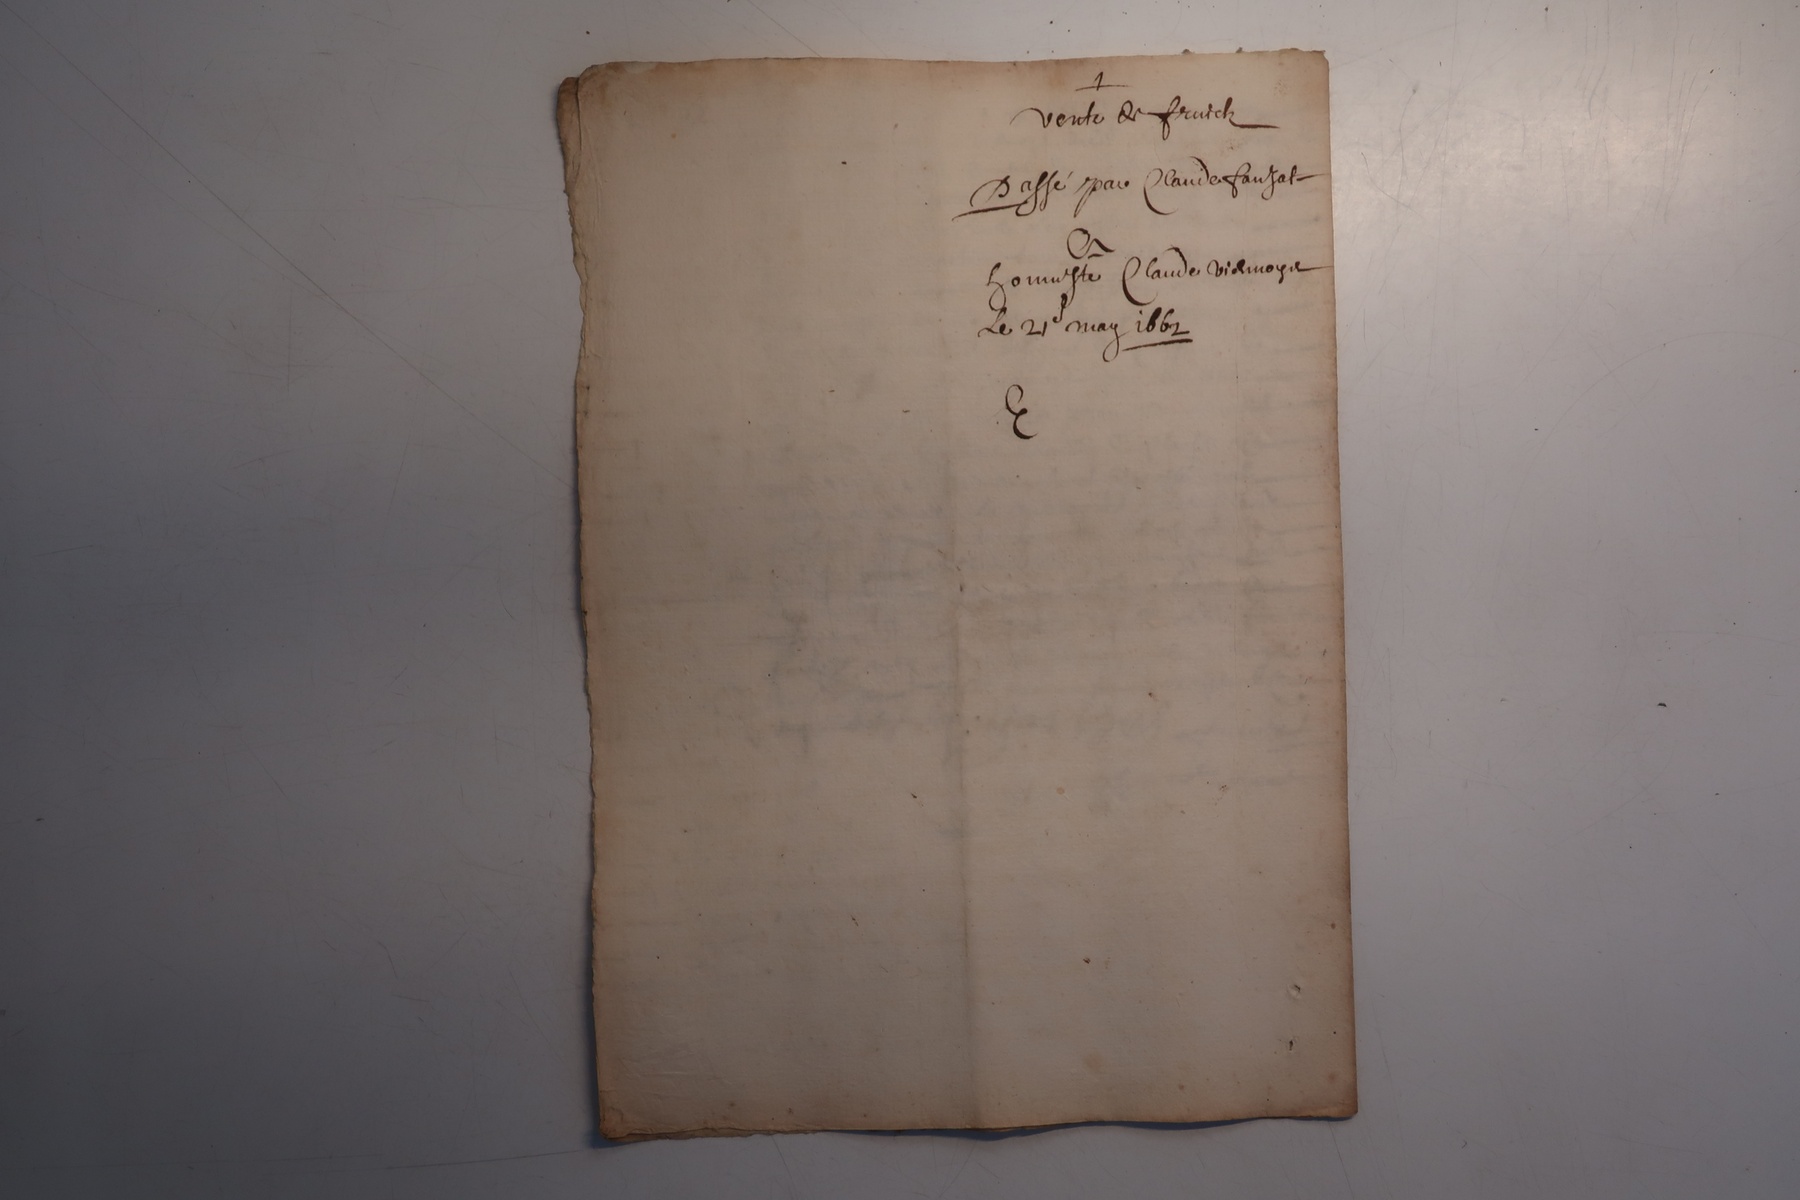 1
vente de fruictz
Passé par Claude fanjat
A
honneste Claude viemoyne
Le 21e may 1662
C